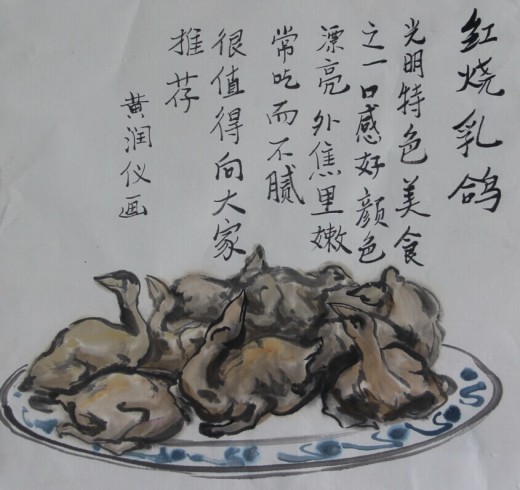 红烧乳鸽
光明特色美食
之一口感好颜色
漂亮外焦里嫩
常吃而不腻
很值得向大家
推荐
黄润仪画